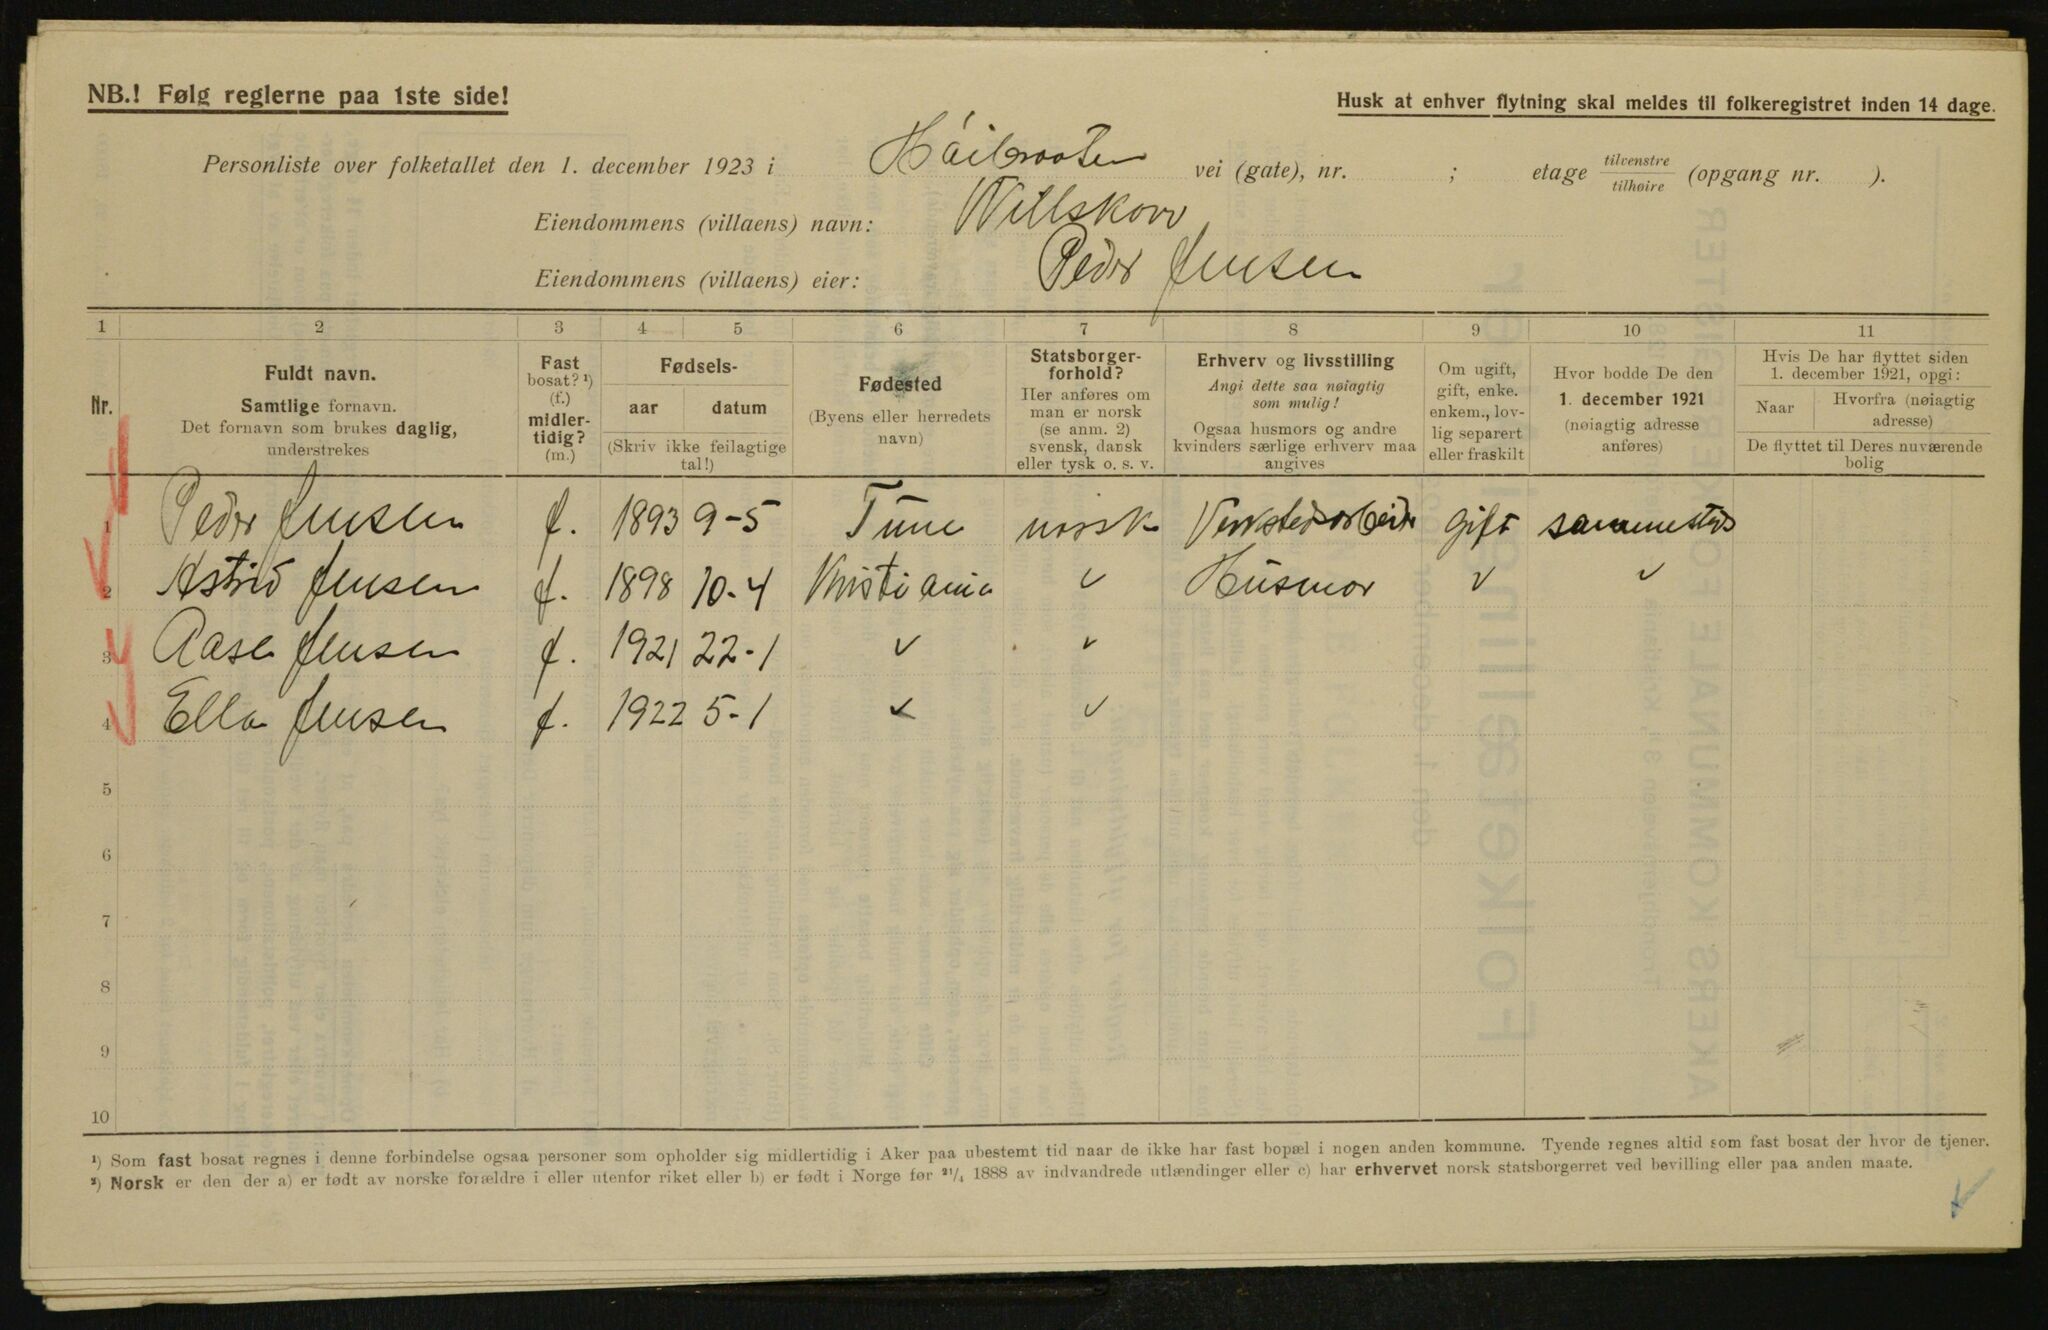 NB.! Følg reglerne paa 1ste side!
Husk at enhver flytning skal meldes til folkeregistret inden 14 dage.
Personliste over folketallet den 1. december 1923 i Høibraaten vei (gate), nr. ; etage tilvenstre / tilhøire (opgang nr. ).
Eiendommens (villaens) navn: Villskov
Eiendommens (villaens) eier: Peder Jensen
1 2 3 4 5 6 7 8 9 10 11
Nr.
Fuldt navn.
Samtlige fornavn.
Det fornavn som brukes daglig,
understrekes
Fast
bosat? ¹)
(f.)
midler-
tidig?
(m.)
Fødsels-
aar datum
(Skriv ikke feilagtige
tal!)
Fødested
(Byens eller herredets
navn)
Statsborger-
forhold?
Her anføres om
man er norsk
(se anm. 2)
svensk, dansk
eller tysk o. s. v.
Erhverv og livsstilling
Angi dette saa nøiagtig
som mulig!
Ogsaa husmors og andre
kvinders særlige erhverv maa
angives
Om ugift,
gift, enke.
enkem., lov-
lig separert
eller fraskilt
Hvor bodde De den
1. december 1921
(nøiagtig adresse
anføres)
Hvis De har flyttet siden
1. december 1921, opgi:
Naar
Hvorfra (nøiagtig
adresse)
De flyttet til Deres nuværende
bolig
1 Peder Jensen f. 1893 9-5 Tune norsk Verkstedsarbeider gift sammesteds
2 Astrid Jensen f. 1898 10-4 Kristiania ✓ Husmor ✓ ✓
3 Aase Jensen f. 1921 22-1 ✓ ✓
4 Ella Jensen f. 1922 5-1 ✓ ✓
5
6
7
8
9
10
¹) Som fast bosat regnes i denne forbindelse ogsaa personer som opholder sig midlertidig i Aker paa ubestemt tid naar de ikke har fast bopæl i nogen anden kommune. Tyende regnes altid som fast bosat der hvor de tjener.
²) Norsk er den der a) er født av norske forældre i eller utenfor riket eller b) er født i Norge før ²¹/₄ 1888 av indvandrede utlændinger eller c) har erhvervet norsk statsborgerret ved bevilling eller paa anden maate.